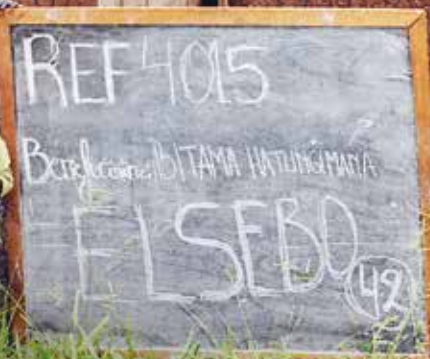 REF 4015
Beneficiaire: BITAMA HATUNGIMANA
ELSEBO
42